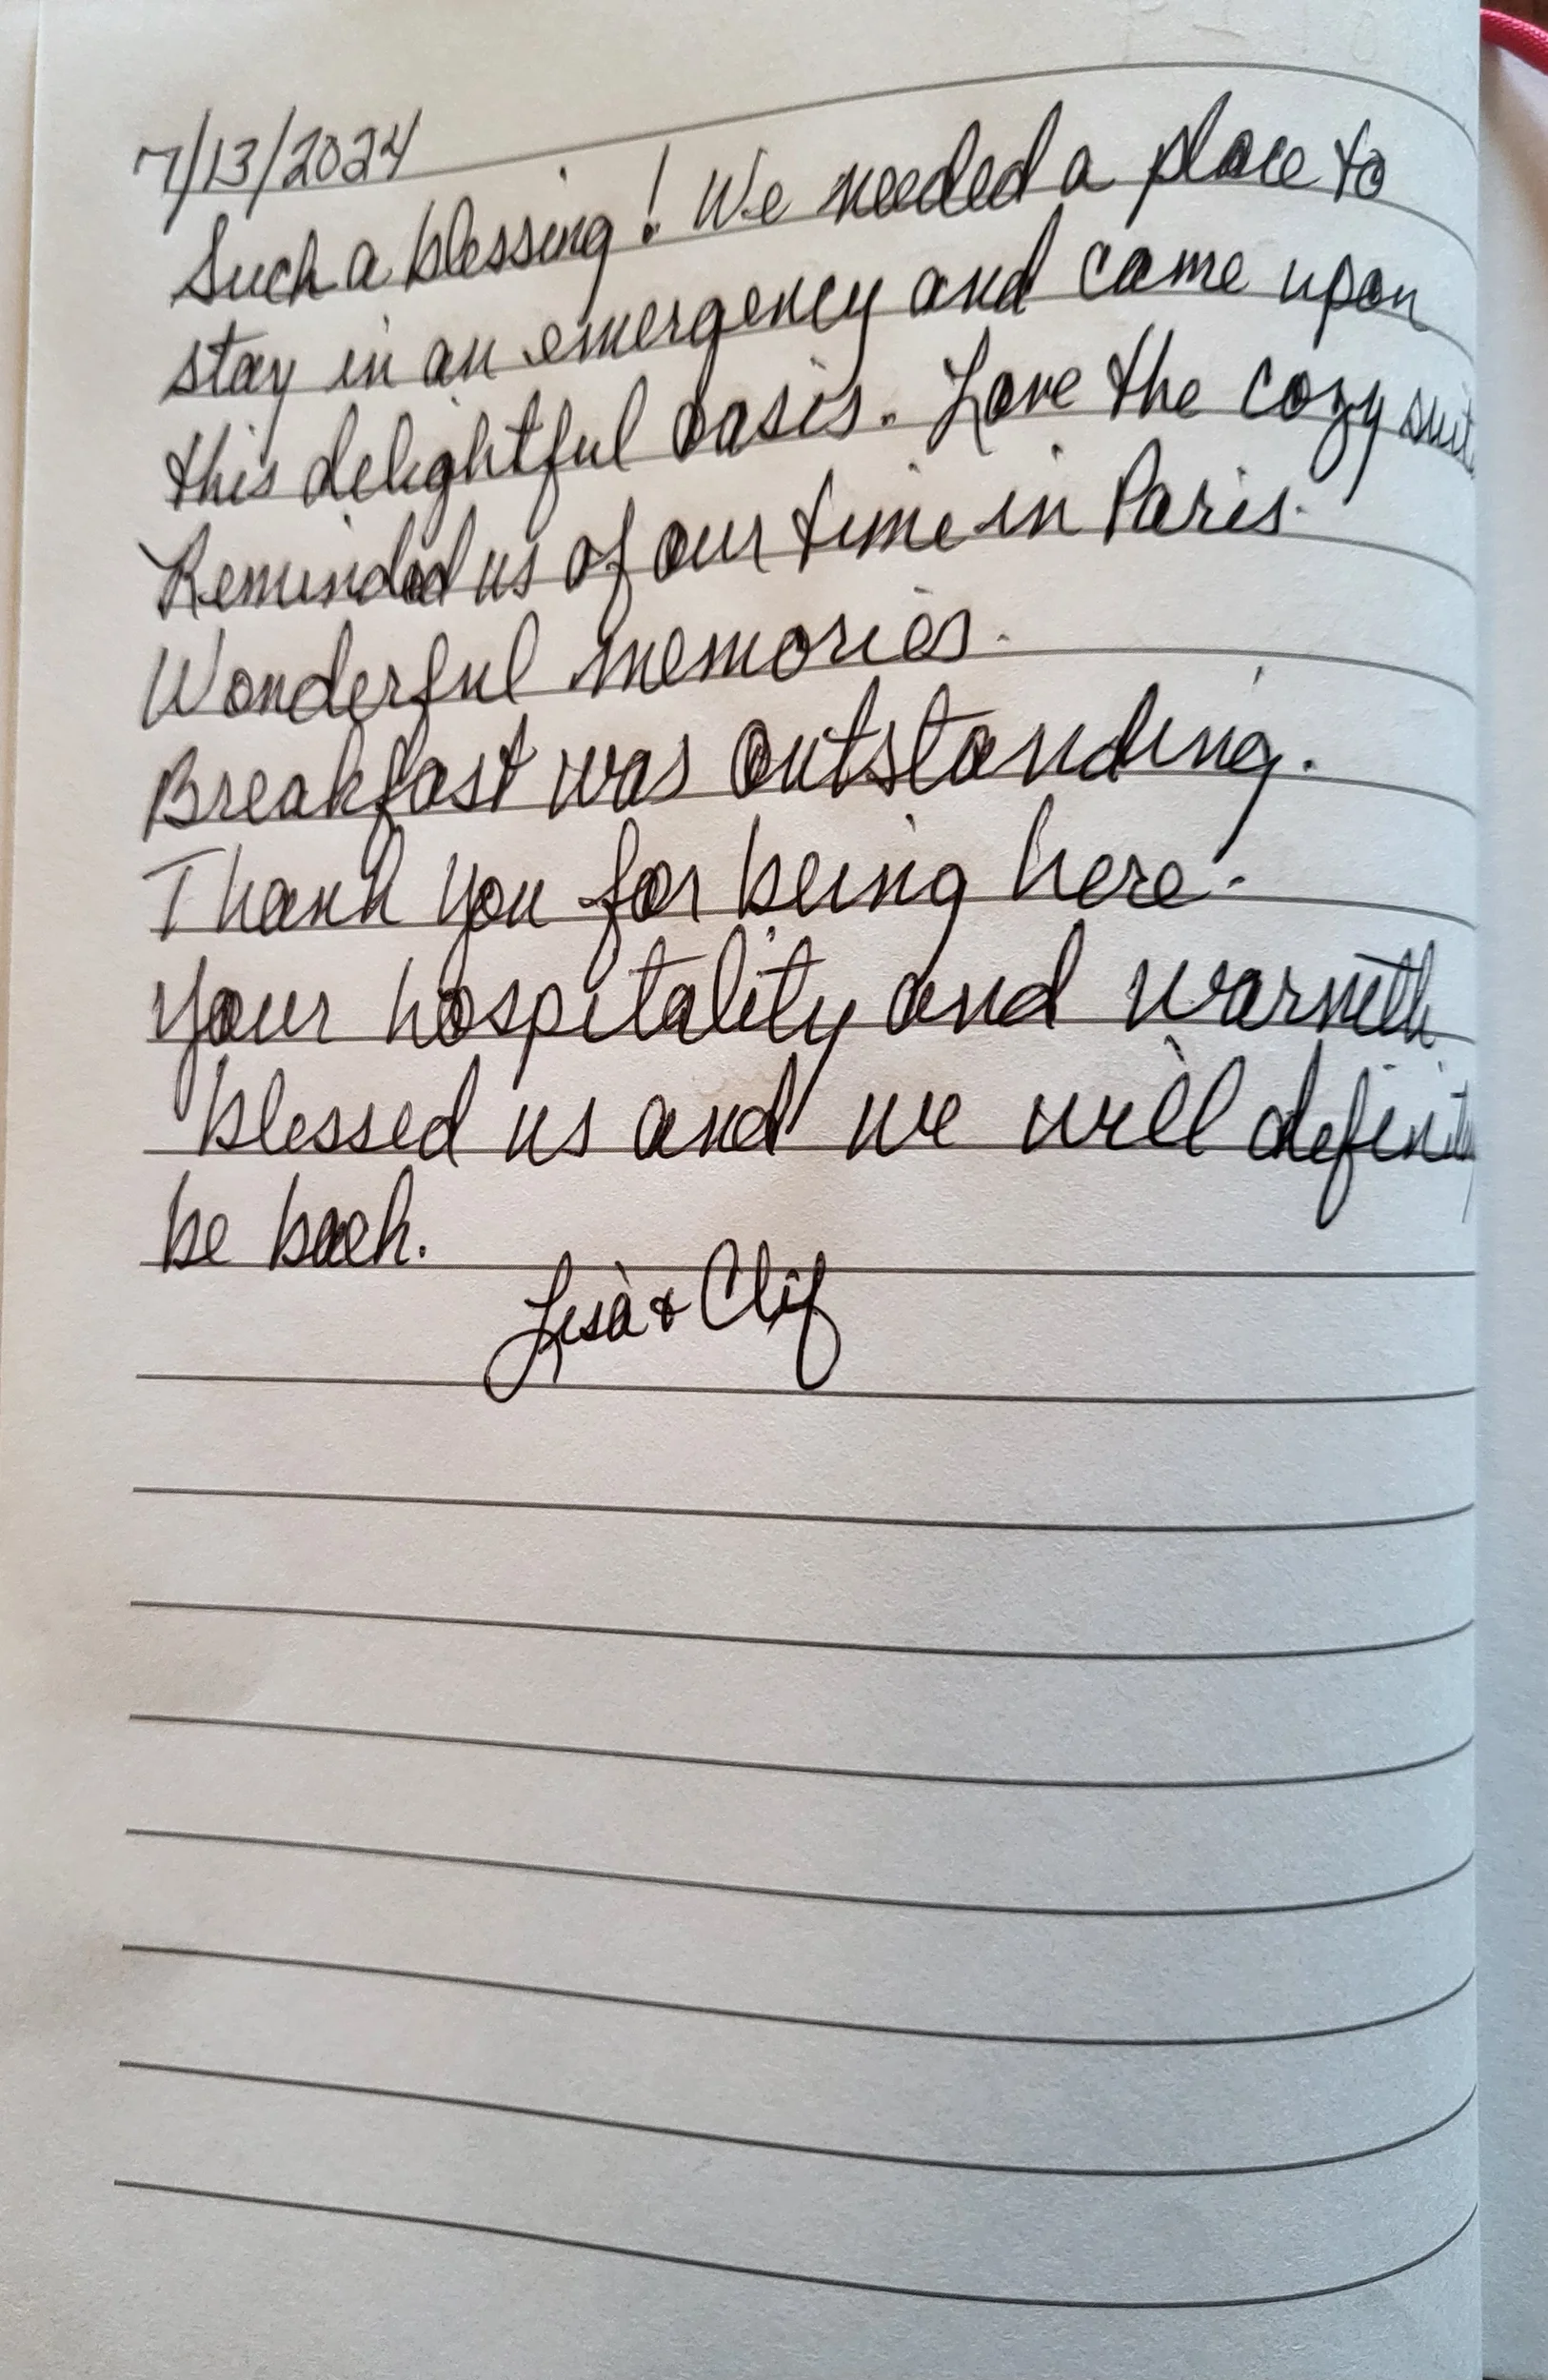 7/13/2024
Such a blessing! We needed a place to
stay in an emergency and came upon
this delightful oasis. Love the cozy suit
Reminded us of our time in Paris.
Wonderful memories.
Breakfast was outstanding.
Thank you for being here.
Your hospitality and warmth
blessed us and we will
be back.
Lisa & Clif